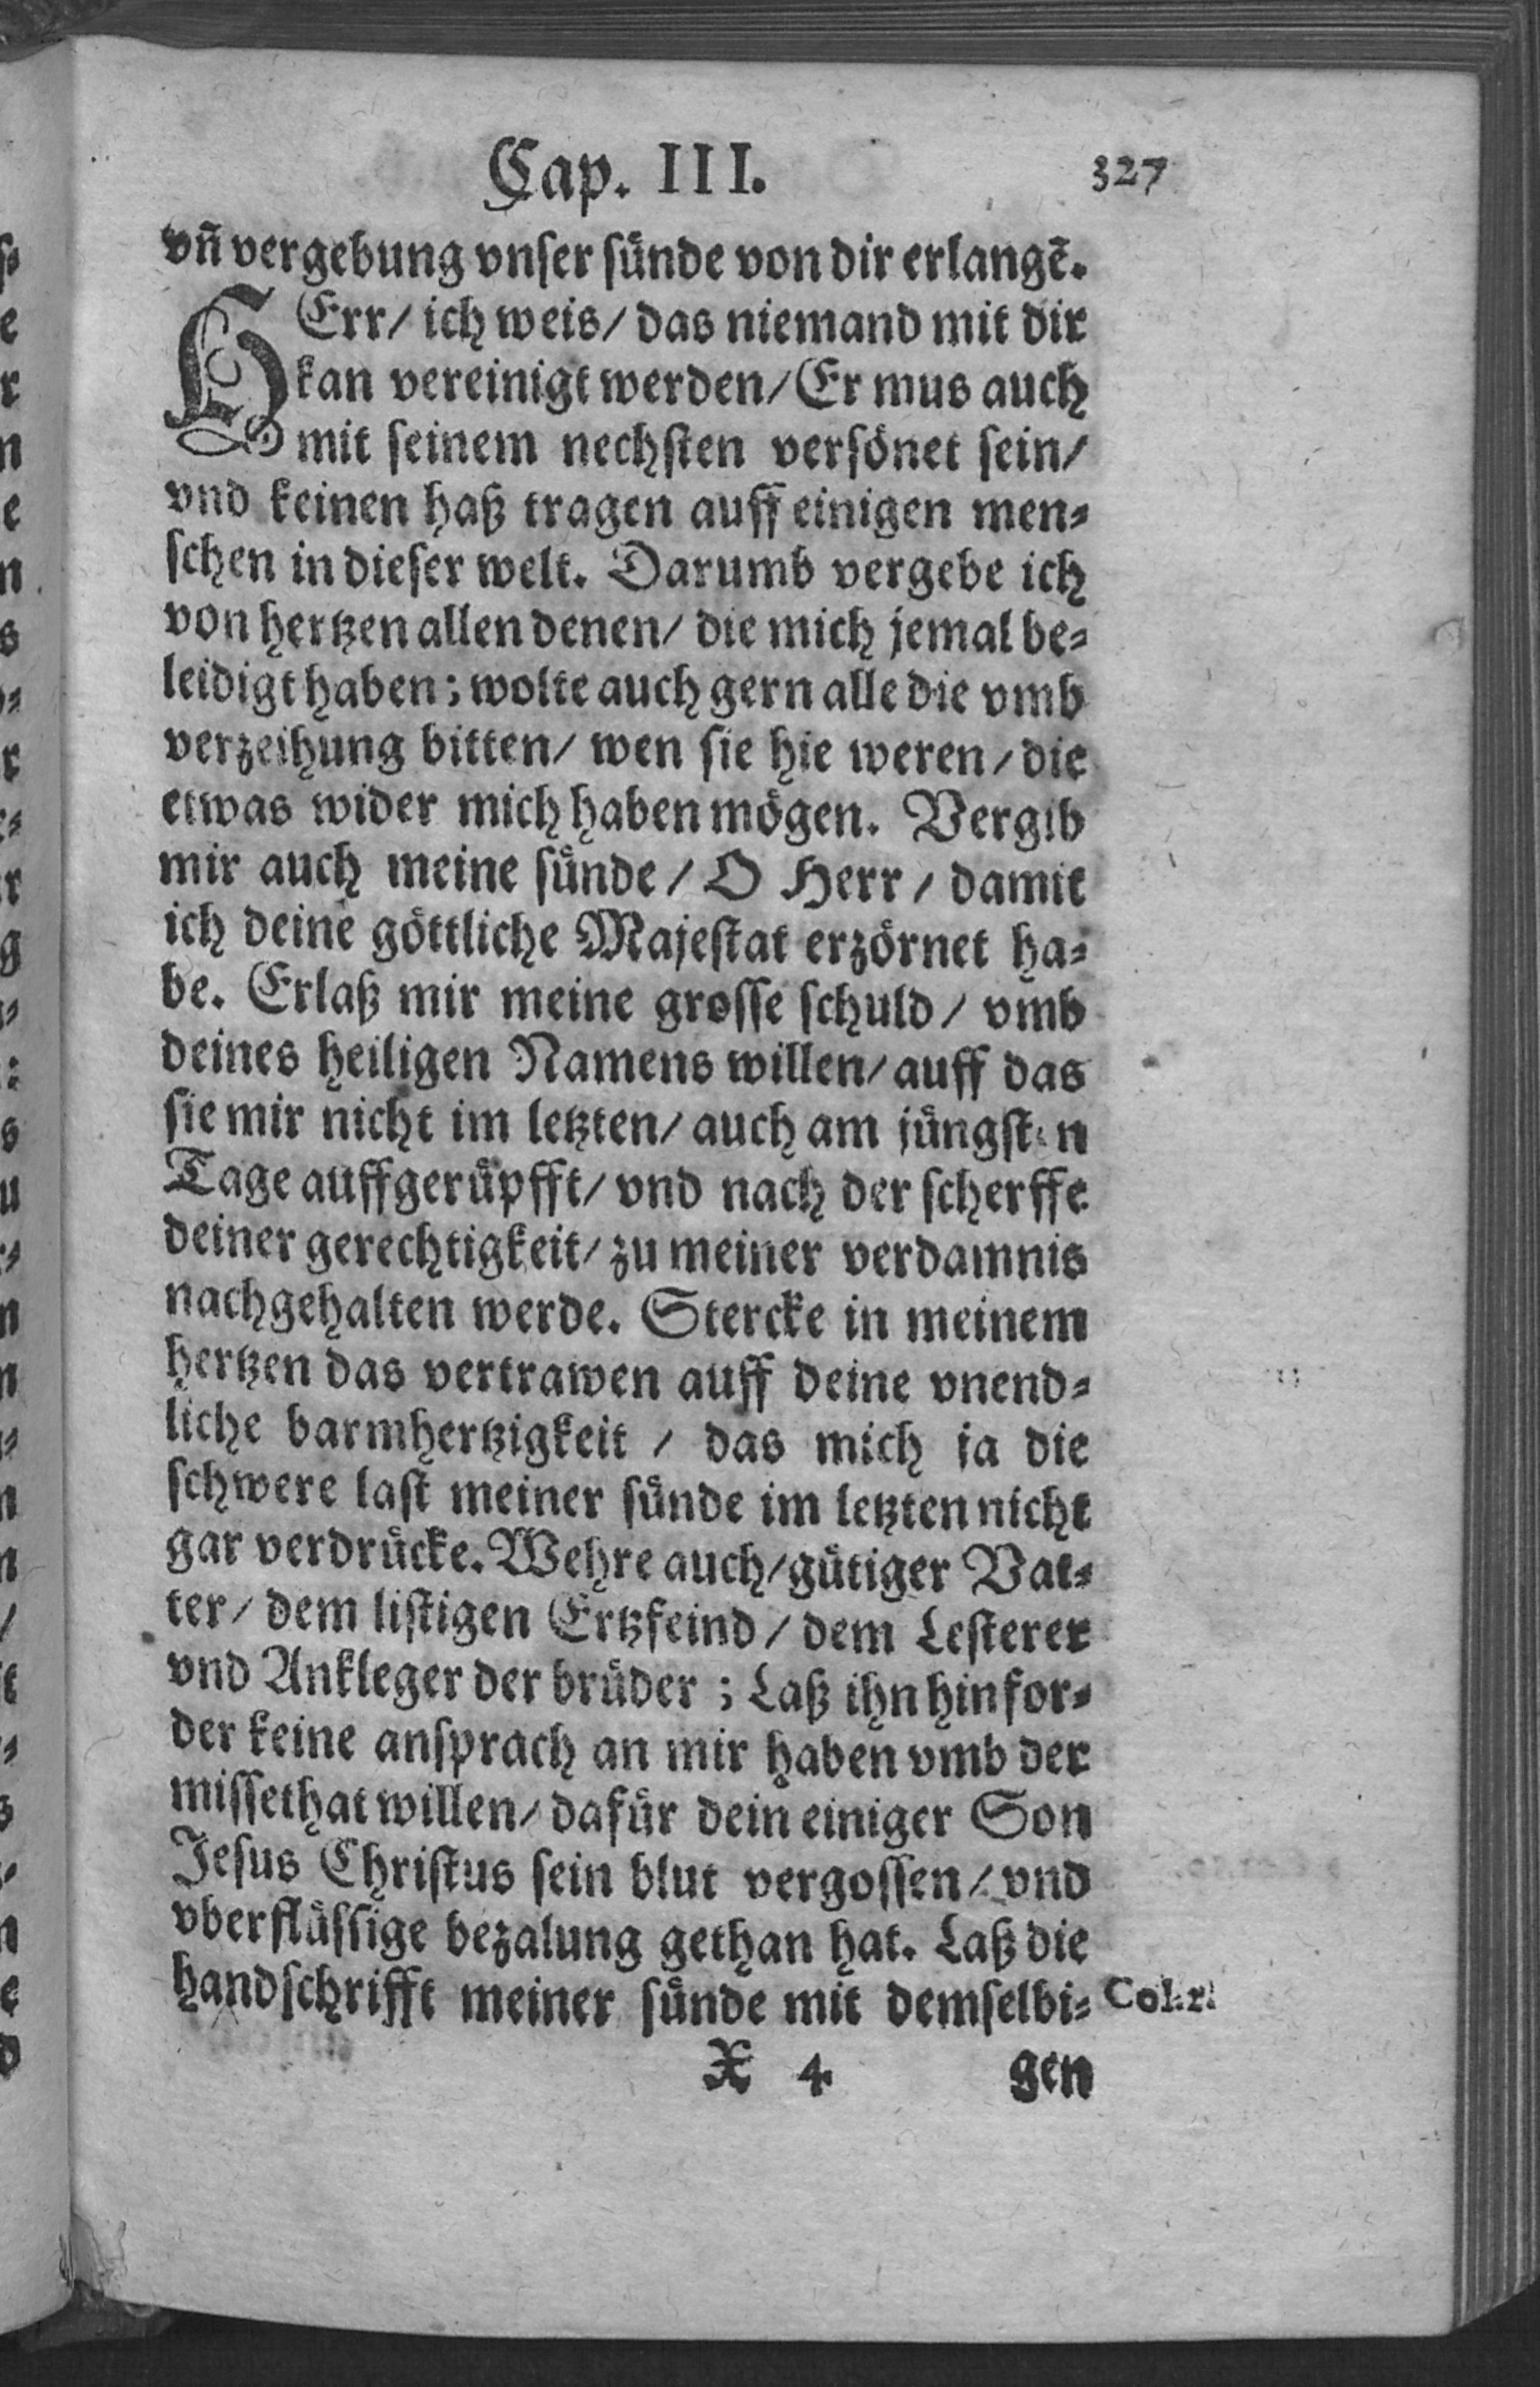 Cap. III. 327
vñ vergebung vnser sünde von dir erlangē.
HErr/ ich weis/ das niemand mit dir
kan vereinigt werden/ Er mus auch
mit seinem nechsten versönet sein/
vnd keinen haß tragen auff einigen men-
schen in dieser welt. Darumb vergebe ich
von hertzen allen denen/ die mich jemal be-
leidigt haben; wolte auch gern alle die vmb
verzeihung bitten/ wen sie hie weren/ die
etwas wider mich haben mögen. Vergib
mir auch meine sünde/ O Herr/ damit
ich deine göttliche Majestat erzörnet ha-
be. Erlaß mir meine grosse schuld/ vmb
deines heiligen Namens willen/ auff das
sie mir nicht im letzten/ auch am jüngsten
Tage auffgerüpfft/ vnd nach der scherffe
deiner gerechtigkeit/ zu meiner verdamnis
nachgehalten werde. Stercke in meinem
hertzen das vertrawen auff deine vnend-
liche barmhertzigkeit/ das mich ja die
schwere last meiner sünde im letzten nicht
gar verdrücke. Wehre auch/ gütiger Vat-
ter/ dem listigen Ertzfeind/ dem Lesterer
vnd Ankleger der brüder; Laß ihn hinfor-
der keine ansprach an mir haben vmb der
missethat willen/ dafür dein einiger Son
Jesus Christus sein blut vergossen/ vnd
vberflüssige bezalung gethan hat. Laß die
handschrifft meiner sünde mit demselbi-
X 4 gen